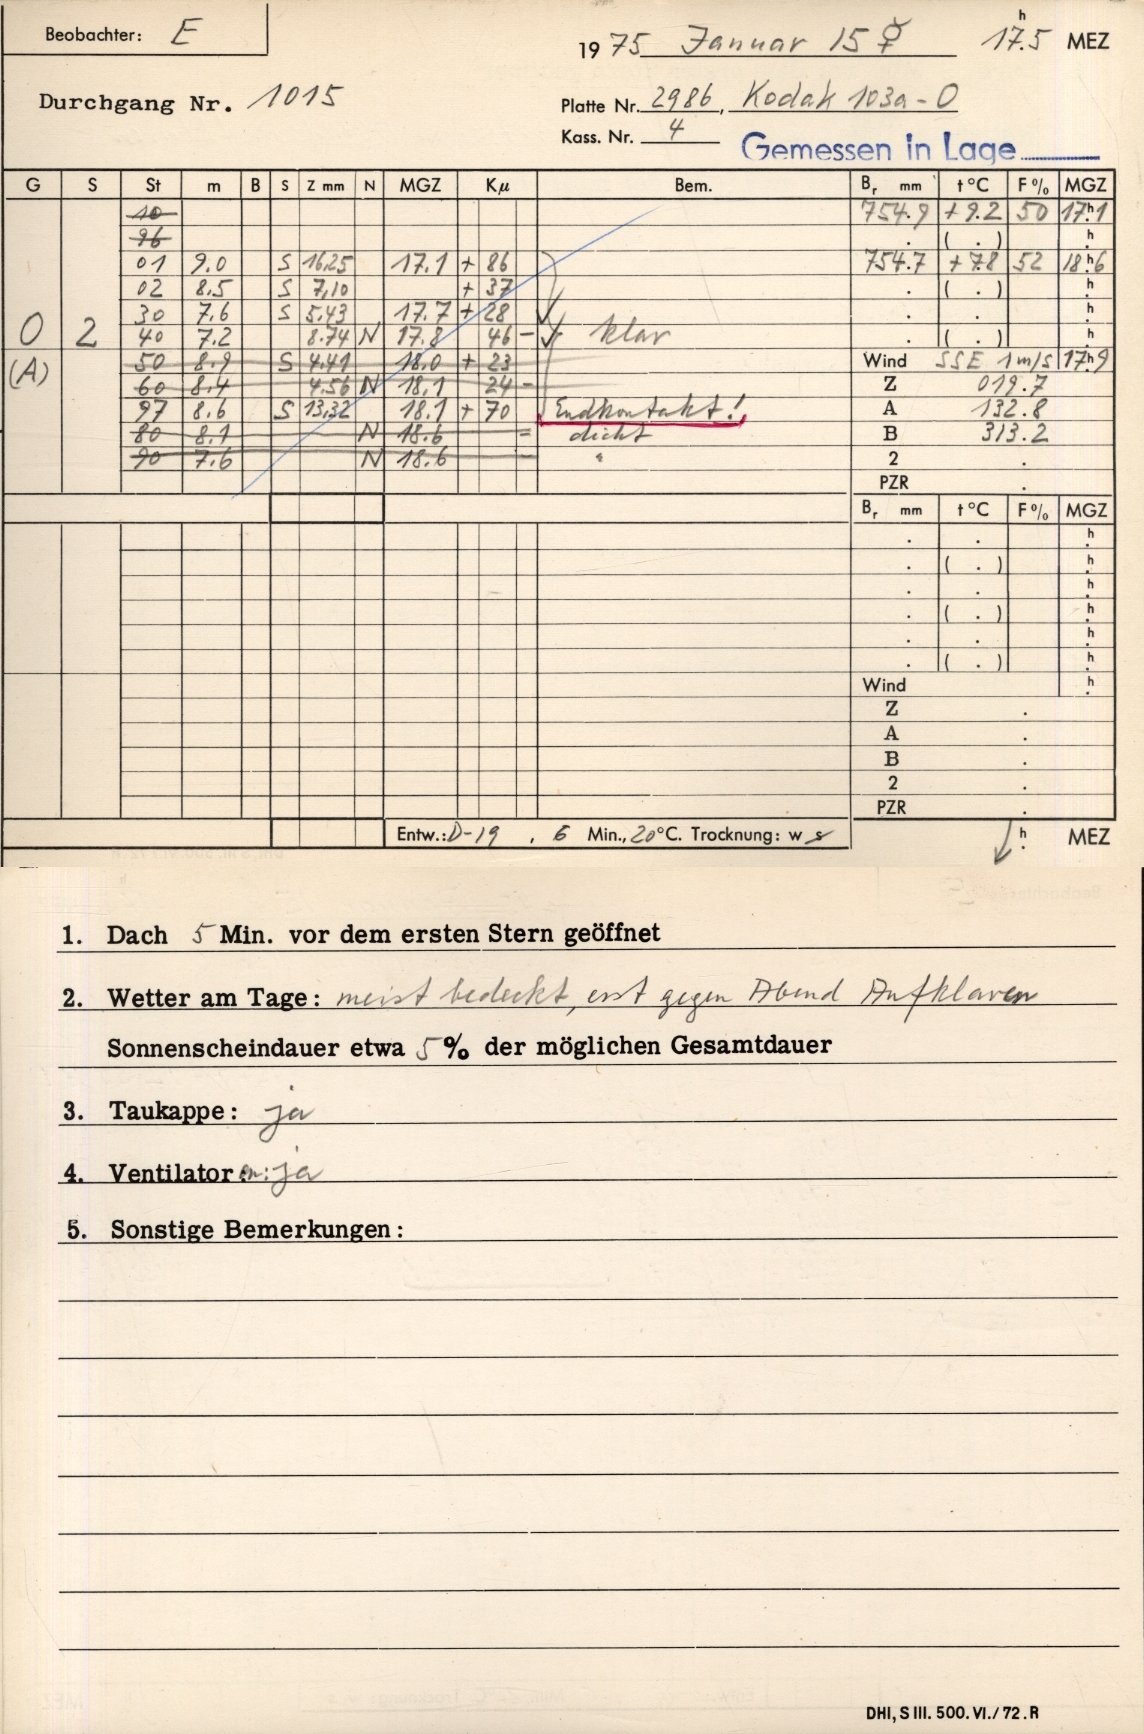 Beobachter: E
1975 Januar 15 ☿ 17.5 h MEZ
Durchgang Nr. 1015
Platte Nr. 2986, Kodak 103a-O
Kass. Nr. 4
Gemessen in Lage
G S St m B S Z mm N MGZ Kμ Bem. Br mm t °C F% MGZ
10 754.9 +9.2 50 17.h1
96 . ( . ) h
01 9.0 S 16,25 17.1 + 86 754.7 +7.8 52 18.h6
02 8.5 S 7,10 + 37 . ( . ) h
30 7.6 S 5.43 17.7 + 28 . . h
0 2 40 7.2 8.74 N 17.8 46 - klar . ( . ) h
(A) 50 8.9 S 4.41 18.0 + 23 Wind SSE 1 m/s 17.h9
60 8.4 4.56 N 18,1 24 - Z 019.7
97 8.6 S 13,32 18.1 + 70 Endkontakt! A 132.8
80 8.1 N 18.6 - dicht B 313.2
90 7.6 N 18.6 - " 2 .
PZR .
Br mm t °C F% MGZ
. . h
. ( . ) h
. . h
. ( . ) h
. . h
. ( . ) h
Wind h
Z .
A .
B .
2 .
PZR .
Entw.: D-19 , 6 Min., 20°C. Trocknung: w s h MEZ
1. Dach 5 Min. vor dem ersten Stern geöffnet
2. Wetter am Tage: meist bedeckt, erst gegen Abend Aufklaren
Sonnenscheindauer etwa 5% der möglichen Gesamtdauer
3. Taukappe: ja
4. Ventilatoren: ja
5. Sonstige Bemerkungen:
DHI, S III. 500. VI./72. R